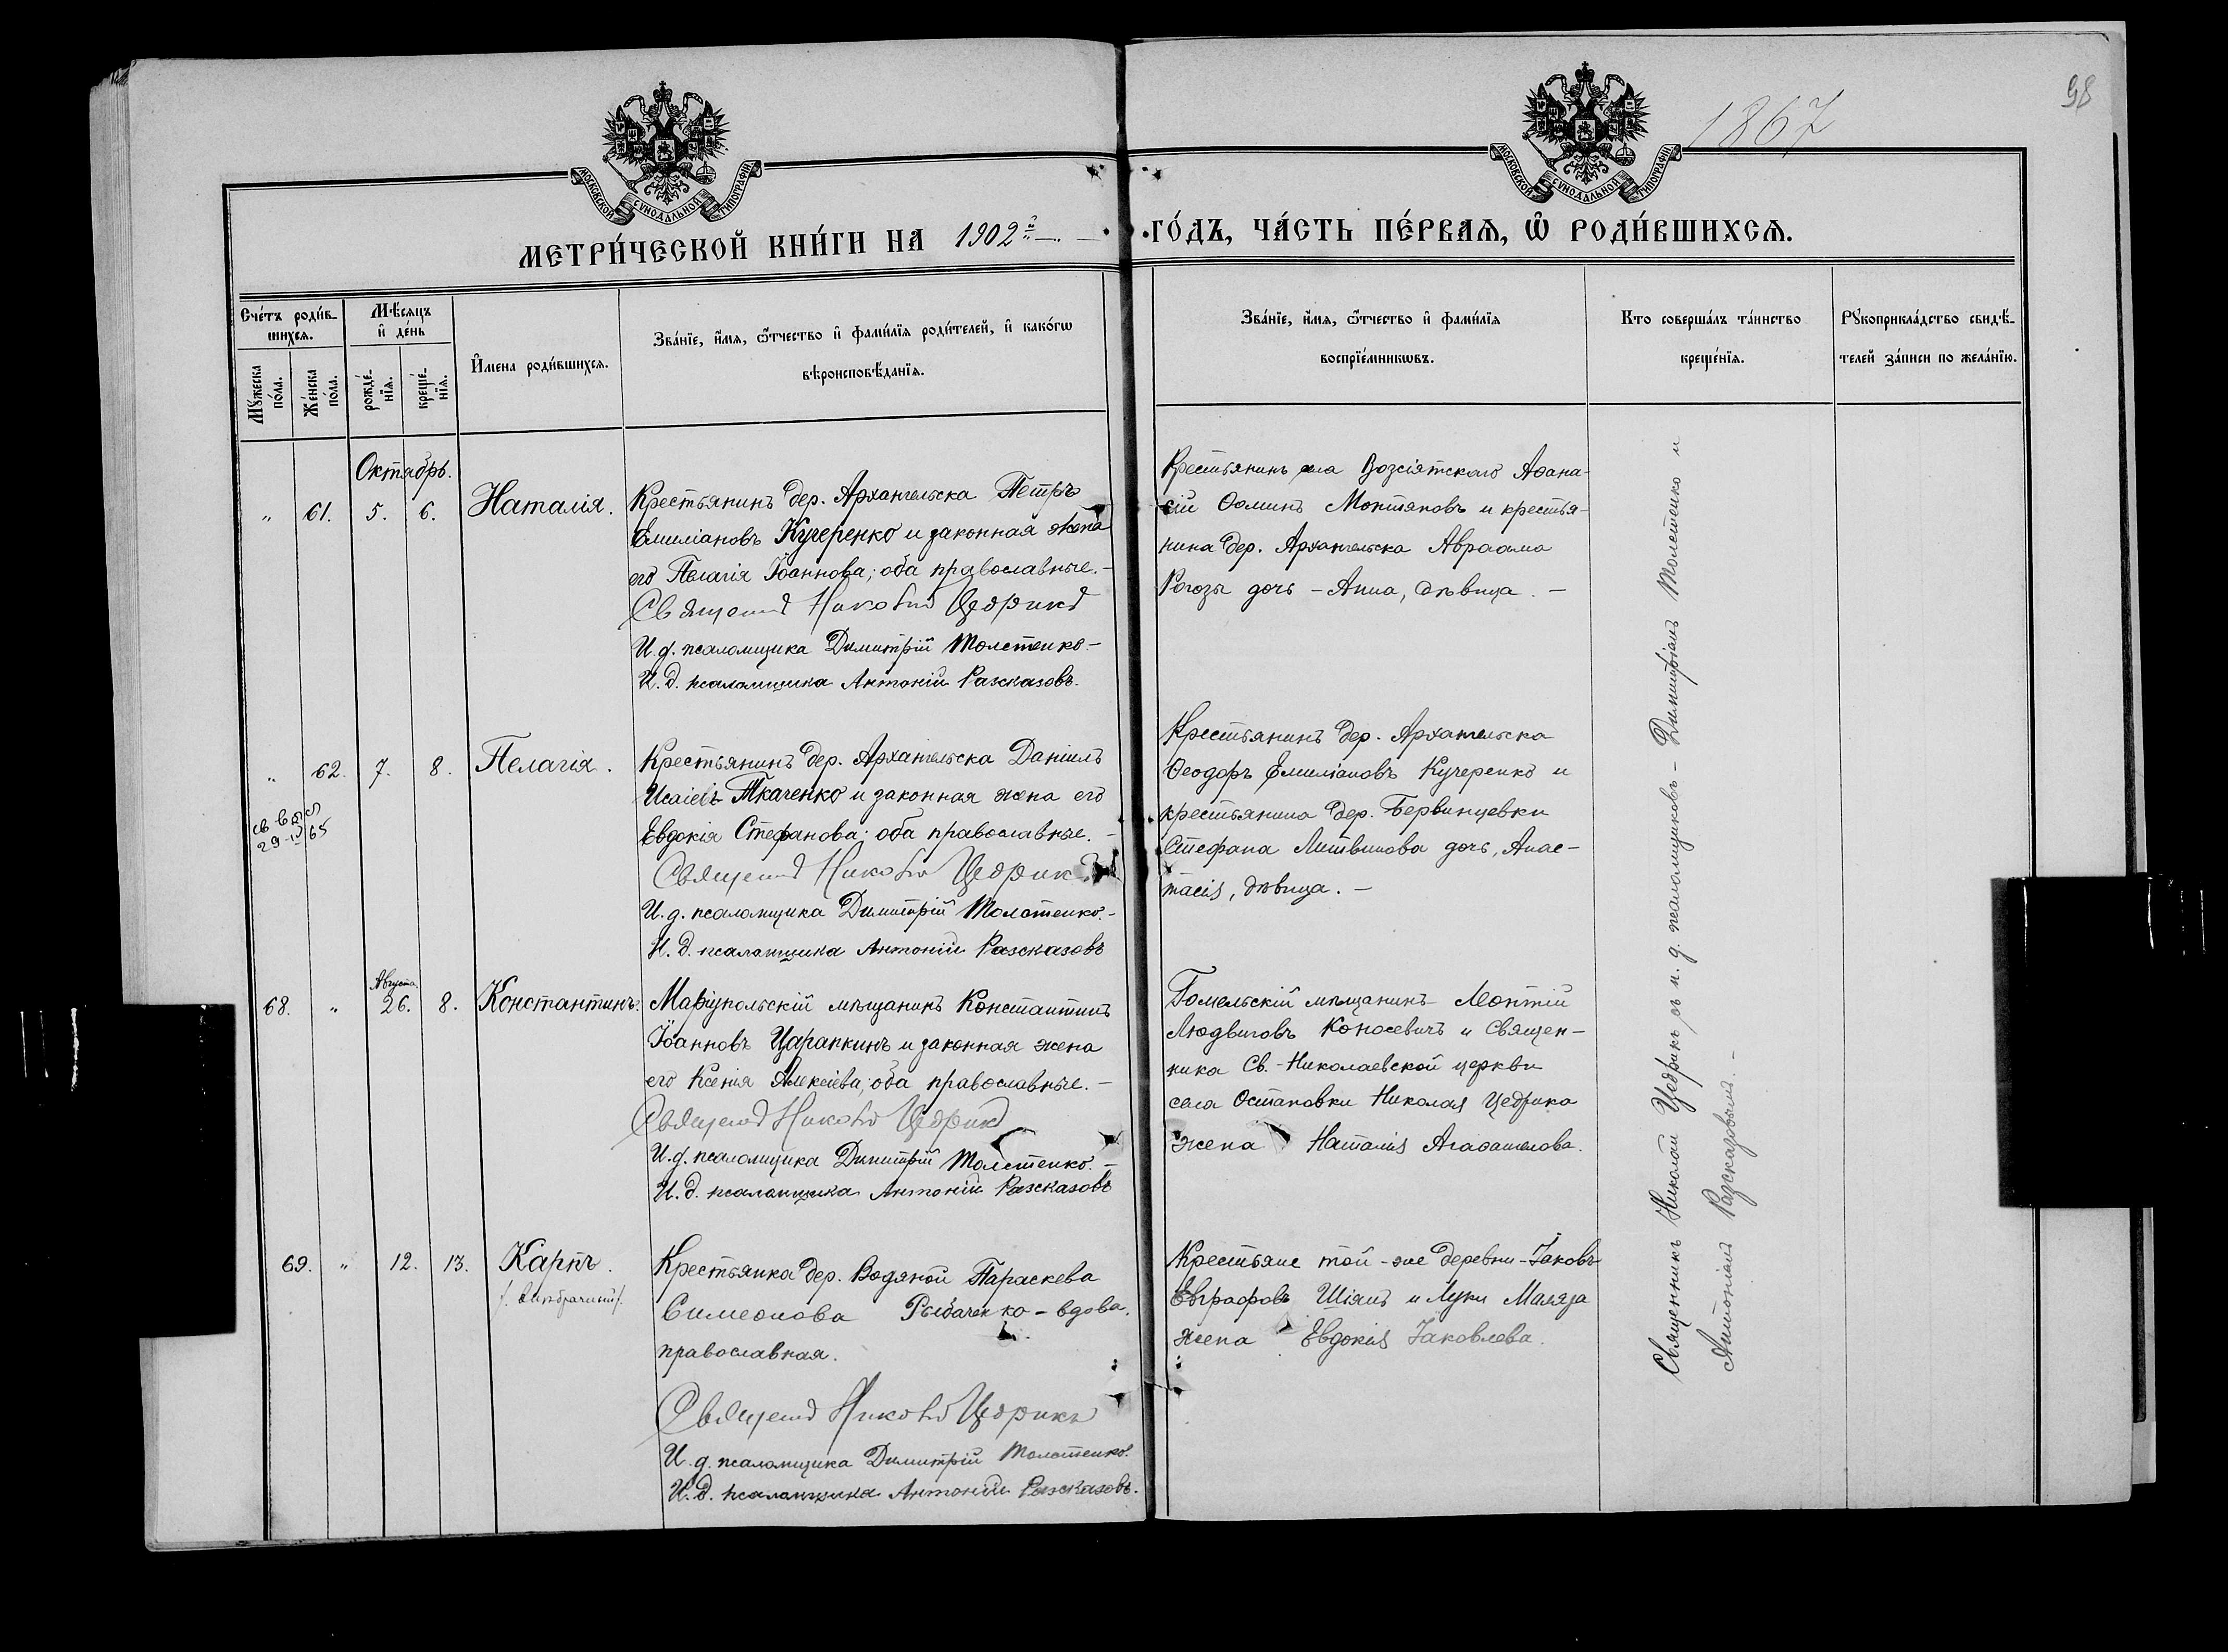 98
1867
МОСКОВСКОЙ СѴНОДАЛЬНОЙ ТИПОГРАФІИ
МОСКОВСКОЙ СѴНОДАЛЬНОЙ ТИПОГРАФІИ
МЕТРИ́ЧЕСКОЙ КНИ́ГИ НА 1902й ГО́ДЪ, ЧА́СТЬ ПЕ́РВАѦ, Ѡ҆ РОДИ́ВШИХСѦ.
Сче́тъ роди́в-
шихсѧ.
Мꙋ́жеска по́ла.
Же́нска по́ла.
Мѣ́сѧцъ
и҆ де́нь
рожде́-
нїѧ.
креще́-
нїѧ.
И҆мена роди́вшихсѧ.
Зва́нїе, и҆́мѧ, ѻ҆́тчество и҆ фами́лїѧ роди́телей, и҆ како́гѡ
вѣроисповѣ́данїѧ.
Зва́нїе, и҆́мѧ, ѻ҆́тчество и҆ фами́лїѧ
воспрїе́мникѡвъ.
Кто соверша́лъ та́инство
креще́нїѧ.
Рꙋкоприкла́дство свидѣ́-
телей за́писи по жела́нїю.
Октябрь.
" 61. 5. 6. Наталія.
Крестьянинъ дер. Архангельска Петръ
Емиліановъ Кучеренко и законная жена
его Пелагія Іоаннова; оба православные.-
Священник Николай Цедрикъ
И. д. псаломщика Димитрій Толстенко-
И. д. псаломщика Антоній Разсказовъ.
Крестьянинъ села Возсіятскаго Аѳана-
сій Ѳоминъ Монтяновъ и крестья-
нина дер. Архангельска Авраама
Рогозы дочь - Анна, дѣвица. -
" 62. 7. 8. Пелагія.
29-IV 65
Крестьянинъ дер. Архангельска Даніилъ
Исаіевъ Ткаченко и законная жена его
Евдокія Стефанова; оба православные. -
Священник Николай Цедрикъ
И. д. псаломщика Димитрій Толстенко.-
И. д. псаломщика Антоній Разсказовъ
Крестьянинъ дер. Архангельска
Ѳеодоръ Емиліановъ Кучеренко и
крестьянина дер. Бервинцевки
Стефана Литвинова дочь, Анас-
тасія, дѣвица. -
Августа
68. " 26. 8. Константинъ.
Маріупольскій мѣщанинъ Константинъ
Іоанновъ Царапкинъ и законная жена
его Ксенія Алексіева; оба православные. -
Священник Николай Цедрикъ
И. д. псаломщика Димитрій Толстенко. -
И. д. псаломщика Антоній Разсказовъ
Гомельскій мѣщанинъ Леонтій
Людвиговъ Коносевичъ и священ-
ника Св.-Николаевской церкви
села Остановки Николая Цедрика
жена Наталія Агаѳангелова.
69. " 12. 13. Карпъ.
/. внѣбрачный/.
Крестьянка дер. Водяной Параскева
Симеонова Рыбаченко - вдова.
православная.
Священник Николай Цедрикъ
И. д. псаломщика Димитрій Толстенко.
И. д. псаломщика Антоній Разсказовъ.
Крестьяне той-же деревни - Іаковъ
Евграфовъ Шіянъ и Луки Маляза
жена Евдокія Іаковлева.
Священникъ Николай Цедрикъ съ и. д. псаломщиковъ - Димитріемъ Толстенко и
Антоніемъ Разсказовымъ. -